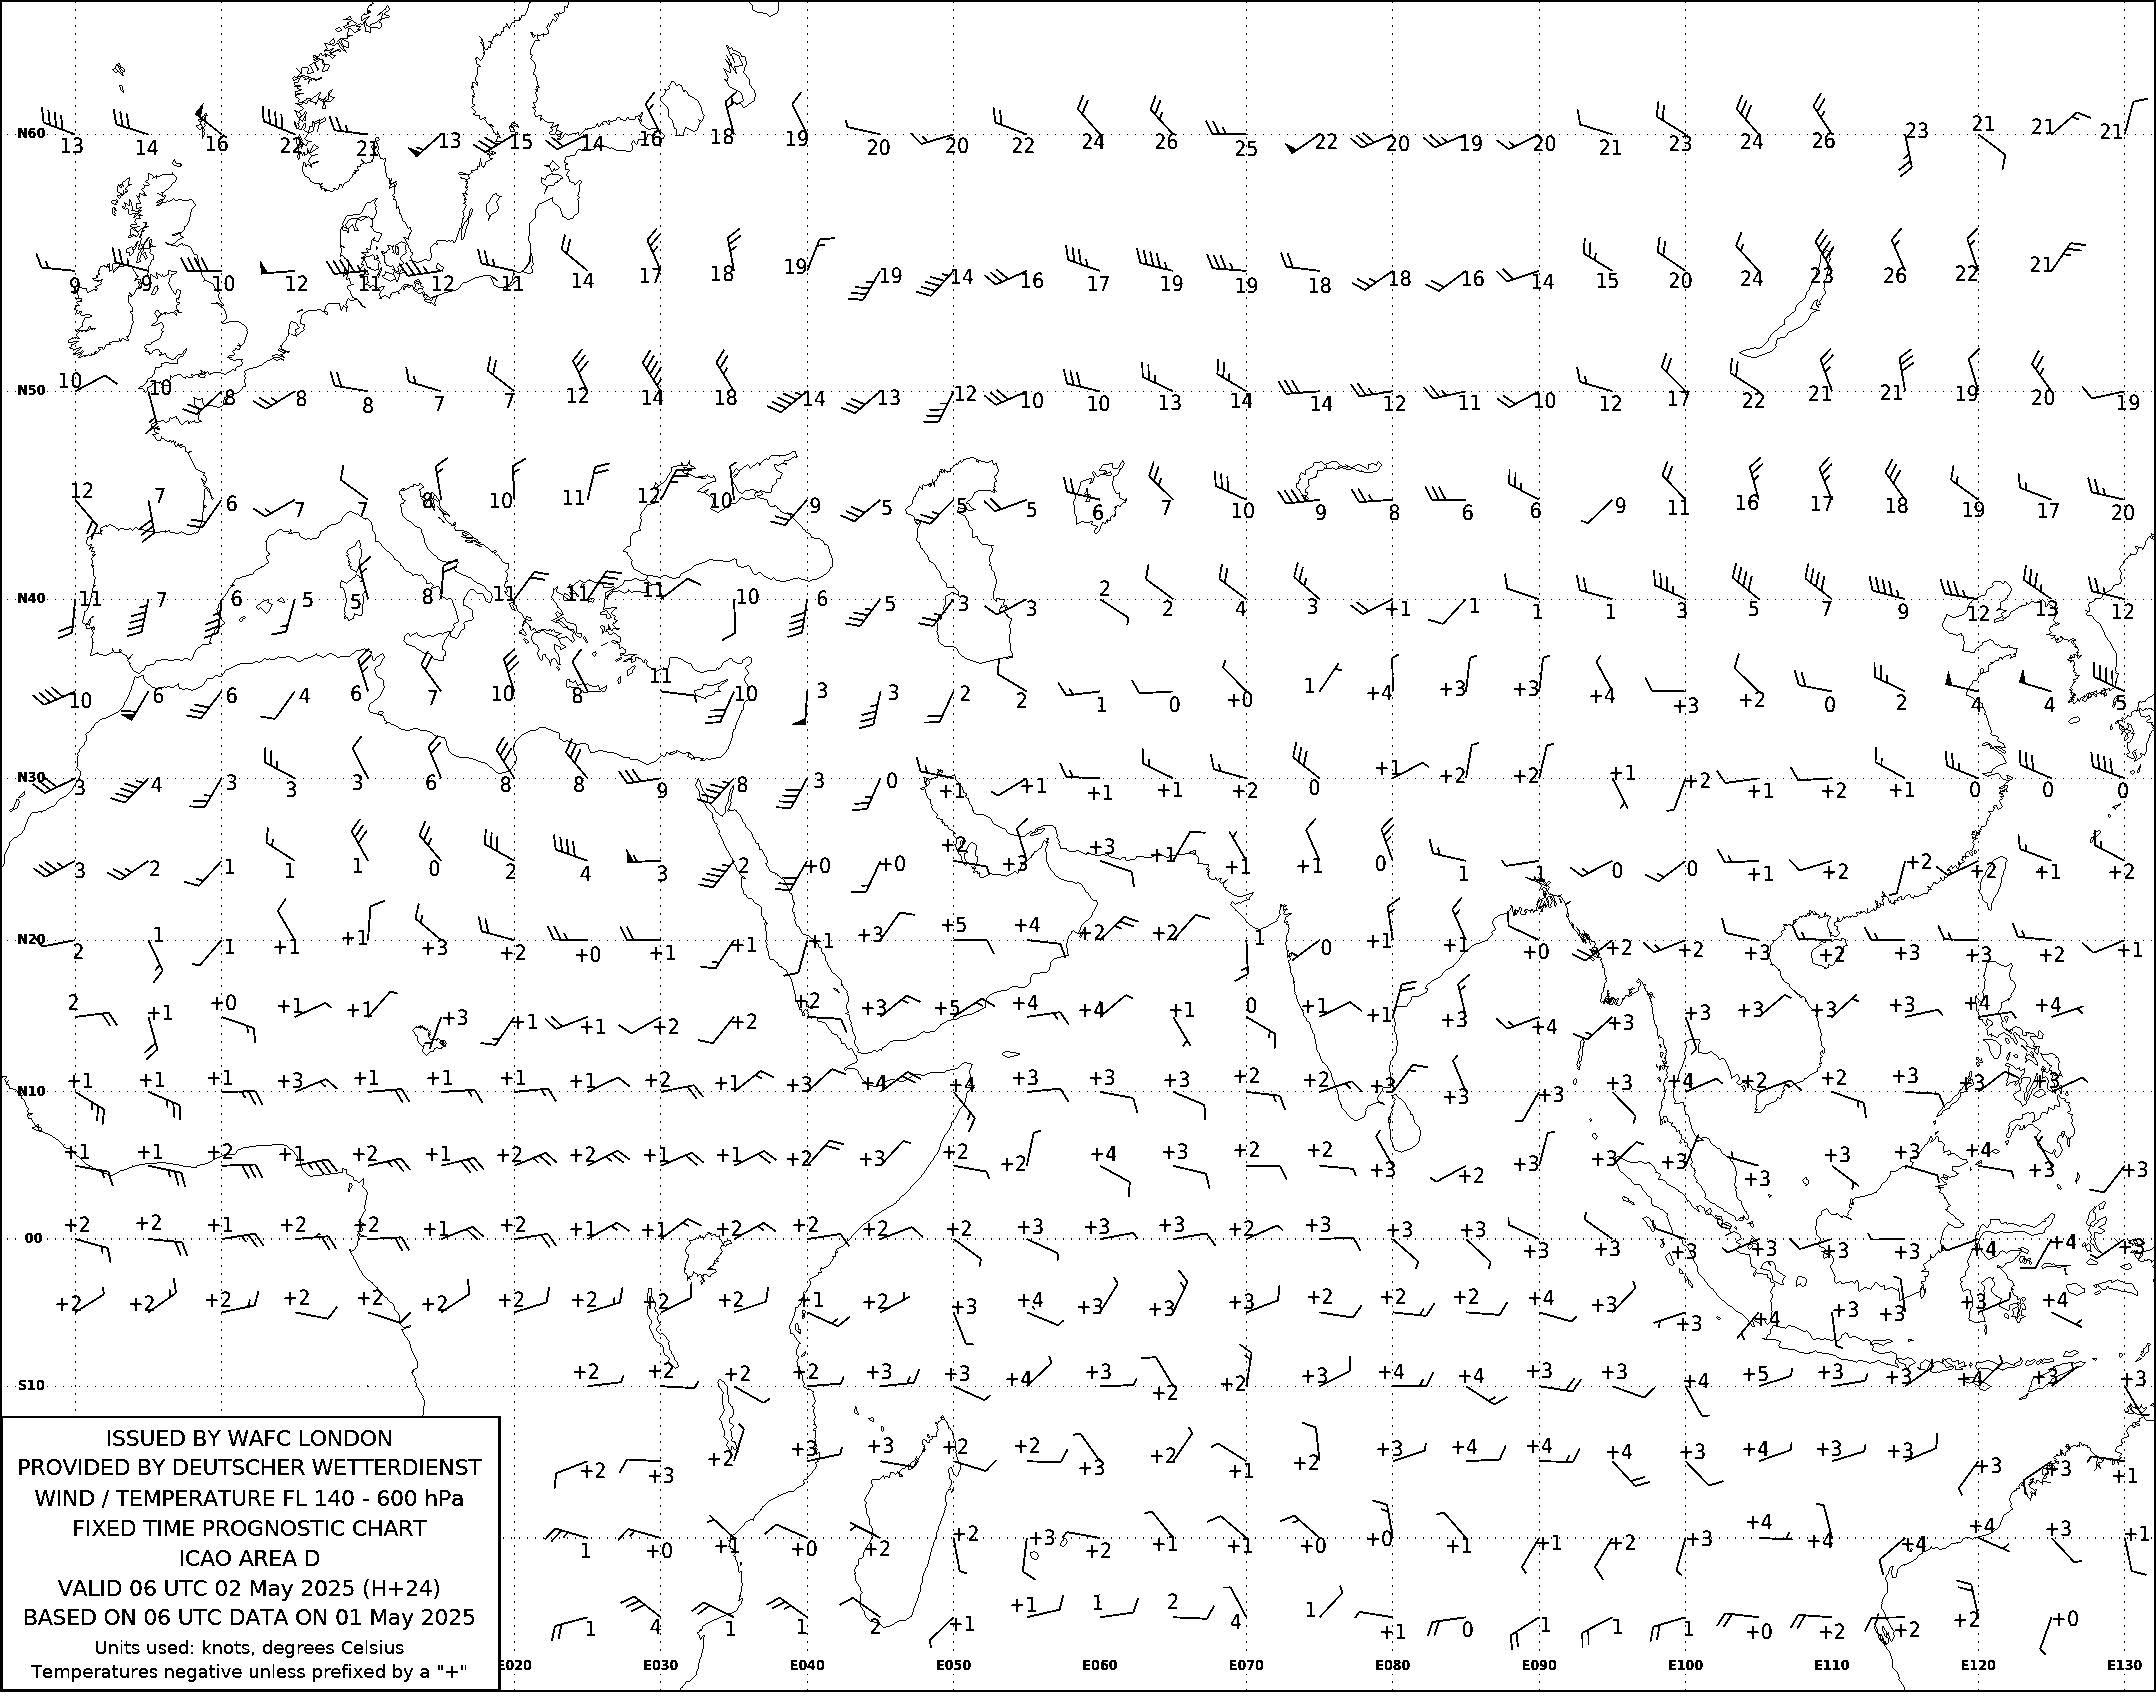 N60 13 14 16 22 21 13 15 14 16 18 19 20 20 22 24 26 25 22 20 19 20 21 23 24 26 23 21 21 21
9 9 10 12 11 12 11 14 17 18 19 19 14 16 17 19 19 18 18 16 14 15 20 24 23 26 22 21
N50 10 10 8 8 8 7 7 12 14 18 14 13 12 10 10 13 14 14 12 11 10 12 17 22 21 21 19 20 19
12 7 6 7 7 8 10 11 12 10 9 5 5 5 6 7 10 9 8 6 6 9 11 16 17 18 19 17 20
N40 11 7 6 5 5 8 11 11 11 10 6 5 3 3 2 2 4 3 +1 1 1 1 3 5 7 9 12 13 12
10 6 6 4 6 7 10 8 11 10 3 3 2 2 1 0 +0 1 +4 +3 +3 +4 +3 +2 0 2 4 4 5
N30 3 4 3 3 3 6 8 8 9 8 3 0 +1 +1 +1 +1 +2 0 +1 +2 +2 +1 +2 +1 +2 +1 0 0 0
3 2 1 1 1 0 2 4 3 2 +0 +0 +2 +3 +3 +1 +1 +1 0 1 1 0 0 +1 +2 +2 +2 +1 +2
N20 2 1 1 +1 +1 +3 +2 +0 +1 +1 +1 +3 +5 +4 +2 +2 1 0 +1 +1 +0 +2 +2 +3 +2 +3 +3 +2 +1
2 +1 +0 +1 +1 +3 +1 +1 +2 +2 +2 +3 +5 +4 +4 +1 0 +1 +1 +3 +4 +3 +3 +3 +3 +3 +4 +4
N10 +1 +1 +1 +3 +1 +1 +1 +1 +2 +1 +3 +4 +4 +3 +3 +3 +2 +2 +3 +3 +3 +3 +4 +2 +2 +3 +3 +3
+1 +1 +2 +1 +2 +1 +2 +2 +1 +1 +2 +3 +2 +2 +4 +3 +2 +2 +3 +2 +3 +3 +3 +3 +3 +3 +4 +3 +3
00 +2 +2 +1 +2 +2 +1 +2 +1 +1 +2 +2 +2 +2 +3 +3 +3 +2 +3 +3 +3 +3 +3 +3 +3 +3 +3 +4 +4 +3
+2 +2 +2 +2 +2 +2 +2 +2 +2 +2 +1 +2 +3 +4 +3 +3 +3 +2 +2 +2 +4 +3 +3 +4 +3 +3 +3 +4
S10 +2 +2 +2 +2 +3 +3 +4 +3 +2 +2 +3 +4 +4 +3 +3 +4 +5 +3 +3 +4 +3 +3
+2 +3 +2 +3 +3 +2 +2 +3 +2 +1 +2 +3 +4 +4 +4 +3 +4 +3 +3 +3 +3 +1
1 +0 +1 +0 +2 +2 +3 +2 +1 +1 +0 +0 +1 +1 +2 +3 +4 +4 +4 +4 +3 +1
1 4 1 1 2 +1 +1 1 2 4 1 +1 0 1 1 1 +0 +2 +2 +2 +0
E020 E030 E040 E050 E060 E070 E080 E090 E100 E110 E120 E130
ISSUED BY WAFC LONDON
PROVIDED BY DEUTSCHER WETTERDIENST
WIND / TEMPERATURE FL 140 - 600 hPa
FIXED TIME PROGNOSTIC CHART
ICAO AREA D
VALID 06 UTC 02 May 2025 (H+24)
BASED ON 06 UTC DATA ON 01 May 2025
Units used: knots, degrees Celsius
Temperatures negative unless prefixed by a "+"